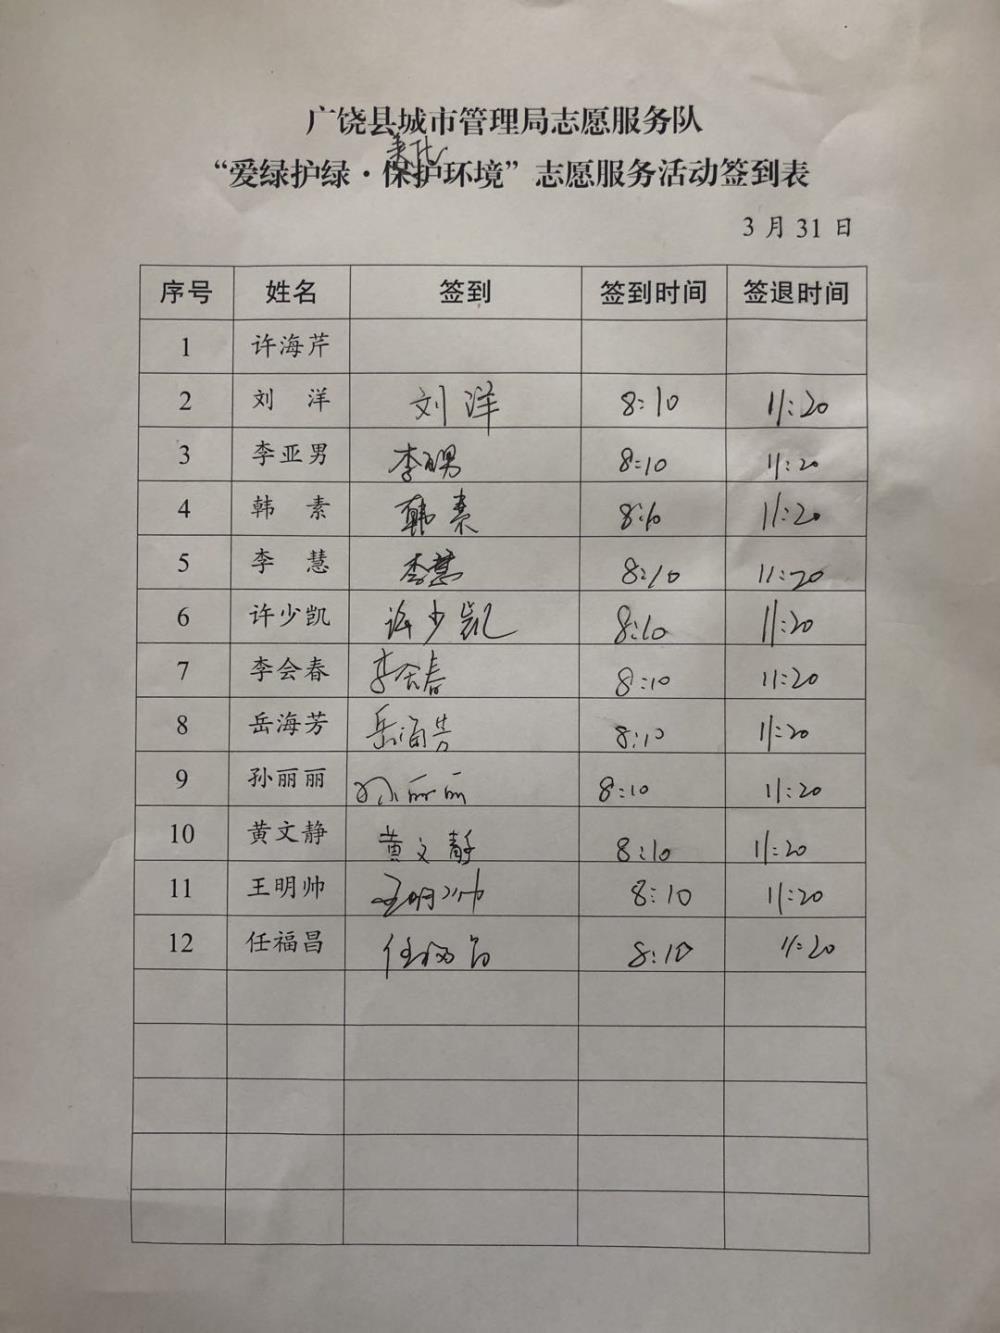 广饶县城市管理局志愿服务队
美化
“爱绿护绿·保护环境”志愿服务活动签到表
3 月 31 日
序号 姓名 签到 签到时间 签退时间
1 许海芹
2 刘 洋 刘洋 8:10 11:20
3 李亚男 李亚男 8:10 11:20
4 韩 素 韩素 8:10 11:20
5 李 慧 李慧 8:10 11:20
6 许少凯 许少凯 8:10 11:20
7 李会春 李会春 8:10 11:20
8 岳海芳 岳海芳 8:10 11:20
9 孙丽丽 孙丽丽 8:10 11:20
10 黄文静 黄文静 8:10 11:20
11 王明帅 王明帅 8:10 11:20
12 任福昌 任福昌 8:10 11:20